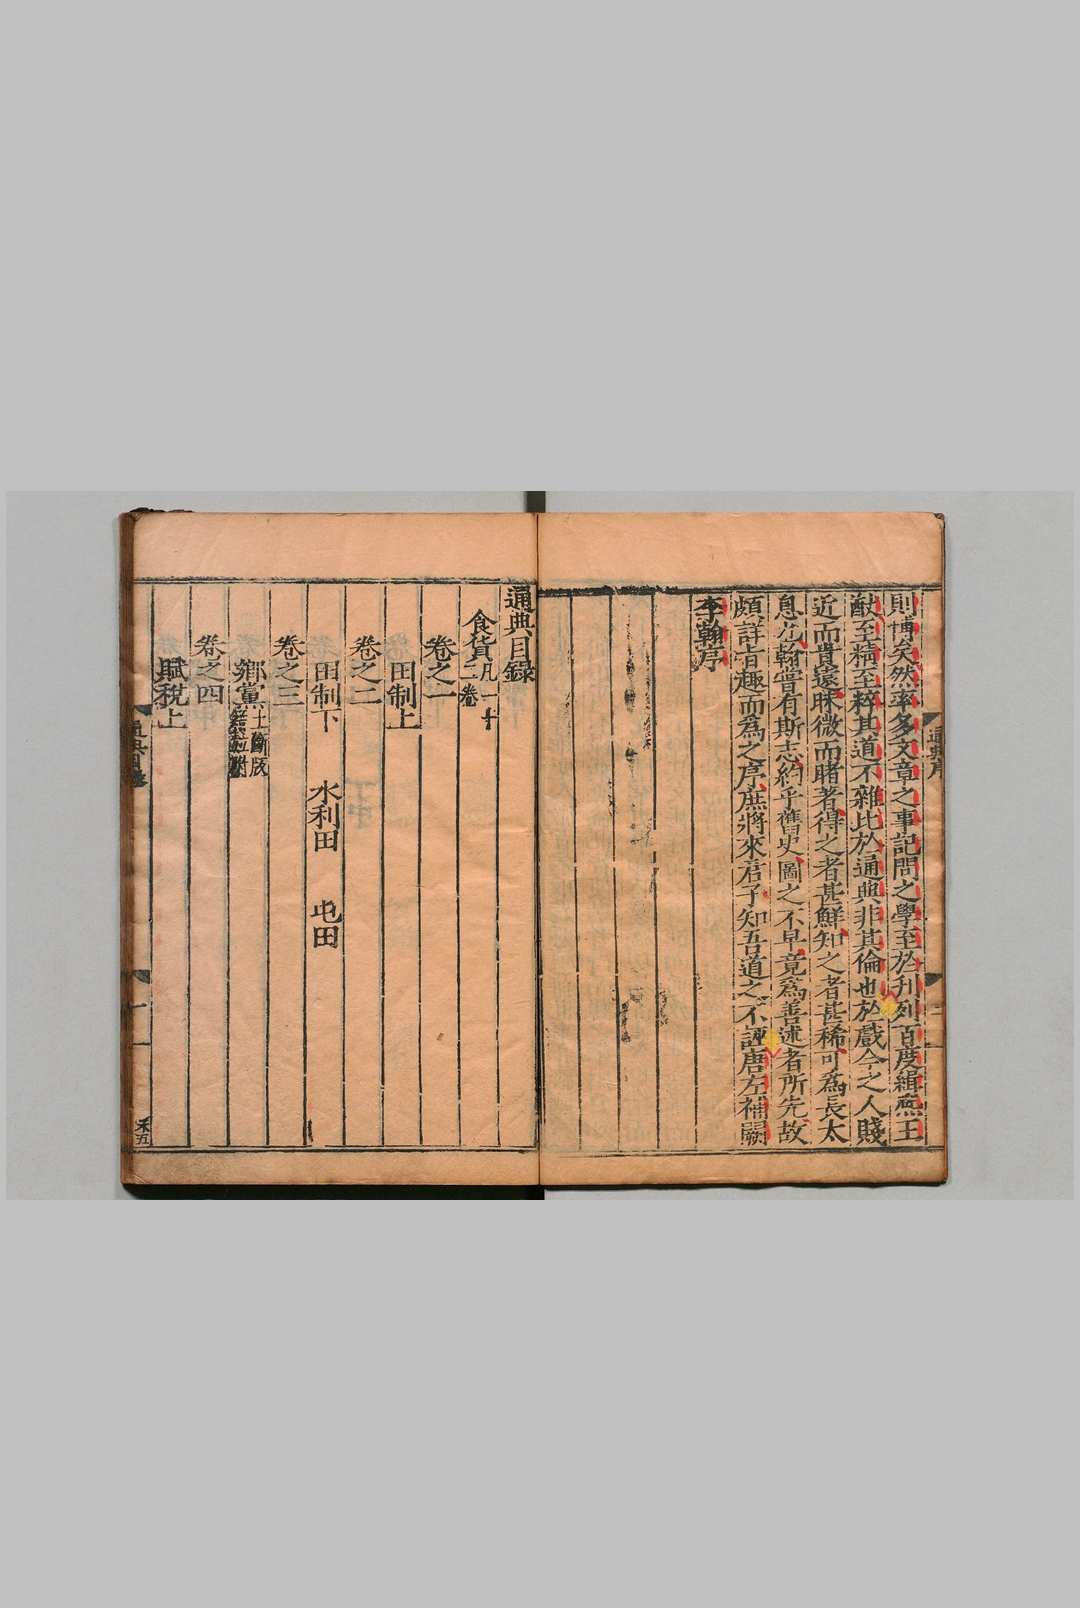 則博矣然率多文章之事記問之學至於刋列百度緝熈王
猷至精至粹其道不雜比於通典非其倫也於戲今之人賤
近而貴遠昧微而睹著得之者甚鮮知之者甚稀可為長太
息也翰嘗有斯志約乎舊史圖之不早竟為善述者所先故
頗詳旨趣而為之序庶將來君子知吾道之不誣唐左補闕
李翰序
通典序
通典目録
食貨凡一十
二卷
卷之一
田制上
卷之二
田制下 水利田 屯田
卷之三
鄉黨土斷版
籍並附
卷之四
賦稅上
通典目録
一